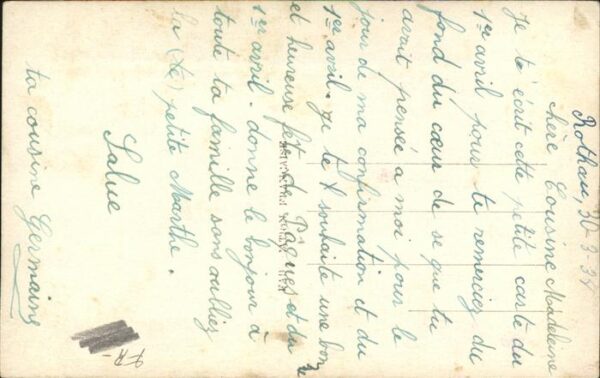 Rothau, 30-3-34
chère Cousine Madeleine
Je t'écrit cette petite carte du
1er avril pour te remerciez du
fond du cœur de se que tu
avait pensée a moi pour le
jour de ma confirmation et du
1er avril. je te souhaite une bonne
et heureuse fete de Pâques et du
1er avril. donne le bonjour à
toute ta famille sans oulliez
la (Le) petite Marthe.
Salue
ta cousine Germaine
FR-